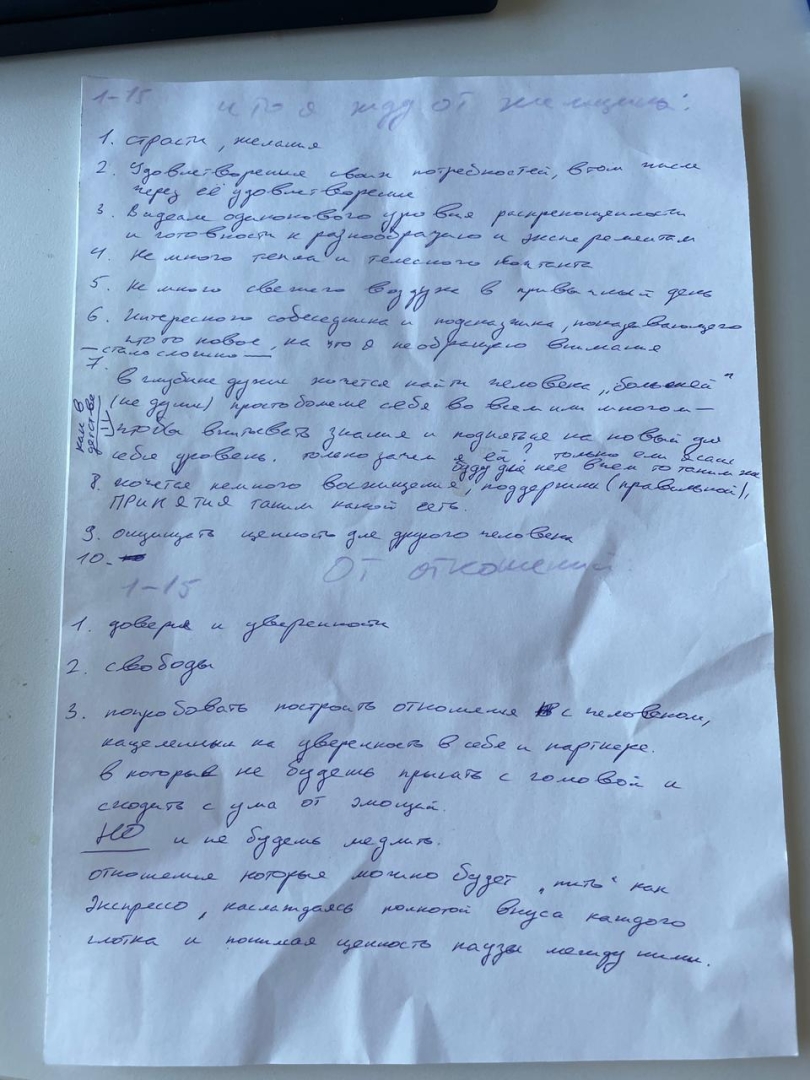 1-15 что я жду от женщины:
1. страсти, желания
2. Удовлетворения своих потребностей, в том числе
через её удовлетворение
3. В идеале одинокового уровня раскрепощенности
и готовности к разнообразию и эксперементам
4. Немного тепла и телесного контакта
5. немного свежего воздуха в привычный день
6. Интересного собеседника и подсказчика, показывающего
что то новое, на что я необращаю внимания
— стало сложно —
7.
в глубине души хочется найти человека „большей"
(не душки) просто более себя во всем или многом —
как в детстве
чтобы впитывать знания и подняться на новый для
себя уровень. только зачем я ей? только если я сам
буду для нее в чем то таким же
8. хочется немного восхищения, поддержки (правильной),
ПРИНЯТИЯ таким какой есть.
9. ощущать ценность для другого человека
10.
1-15 От отношений:
1. доверия и уверенности
2. свободы
3. попробовать построить отношения с человеком,
нацеленным на уверенность в себе и партнере.
в которые не будешь прыгать с головой и
сходить с ума от эмоций.
НО и не будешь медлить.
отношения которые можно будет „пить" как
Экспрессо, наслаждаясь полнотой вкуса каждого
глотка и понимая ценность паузы между ними.